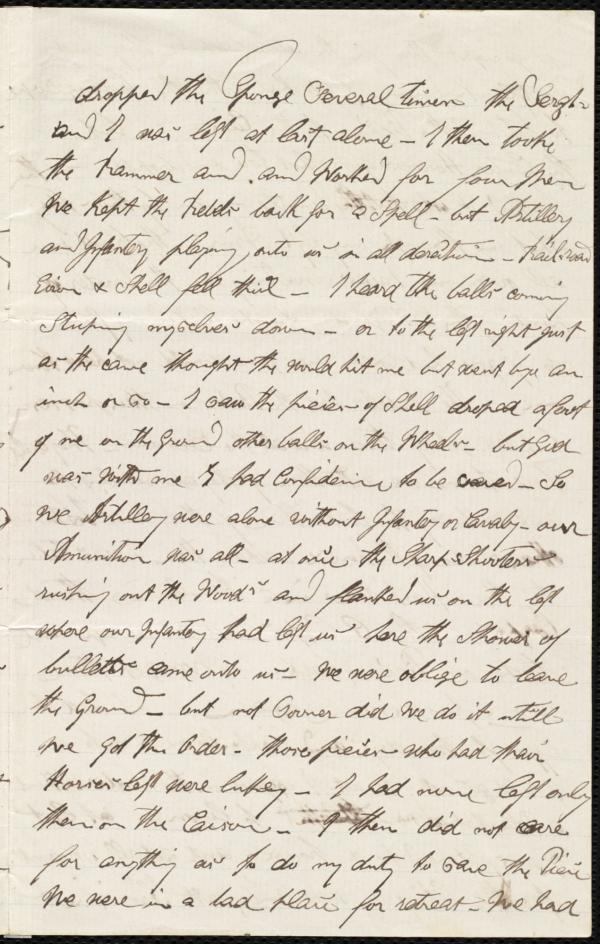 dropped the Sponge several times the Sergt-
and I was left at last alone - I then tooke
the Rammer and . and Worked for four Men
We Kept the Rebels back for a Spell - but Artillery
and Infantry playing onto us in all daration - Railroad
Eiron & Shell fell thik - I heard the balls coming
Stuping myselves down - or to the left right just
as the came thought the world hit me but went bye an
inch or so - I saw the pieces of Shell droped afront
of me on the Ground other balls on the Wheels - but God
was with me & I had Confidence to be saved - So
we Artillery were alone without Infantry or Cavalry - our
Amunition was all - at once the Sharp Shooters
rushing out the Woods and flanked us on the left
where our Infantry had left us here the Shower of
bulletts came onto us - We were oblige to leave
the Ground - but not Sooner did We do it untill
we got the Order - those pieces who had thair
Horses left were lukey - I had none left only
them on the Caison - I then did not care
for anything as to do my duty to save the Piece
We were in a bad place for retreat - We had